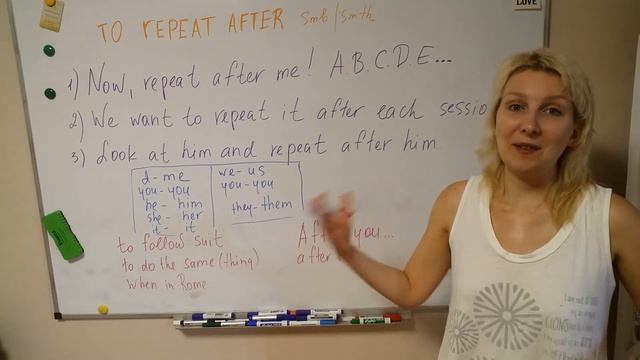 TO REPEAT AFTER smb/smth
LOVE
1) Now, repeat after me! A.B.C.D.E...
2) We want to repeat it after each sessio
3) Look at him and repeat after him
I - me
you - you
he - him
she - her
it - it
we - us
you - you
they - them
to follow suit
to do the same (thing)
when in Rome...
you...
after